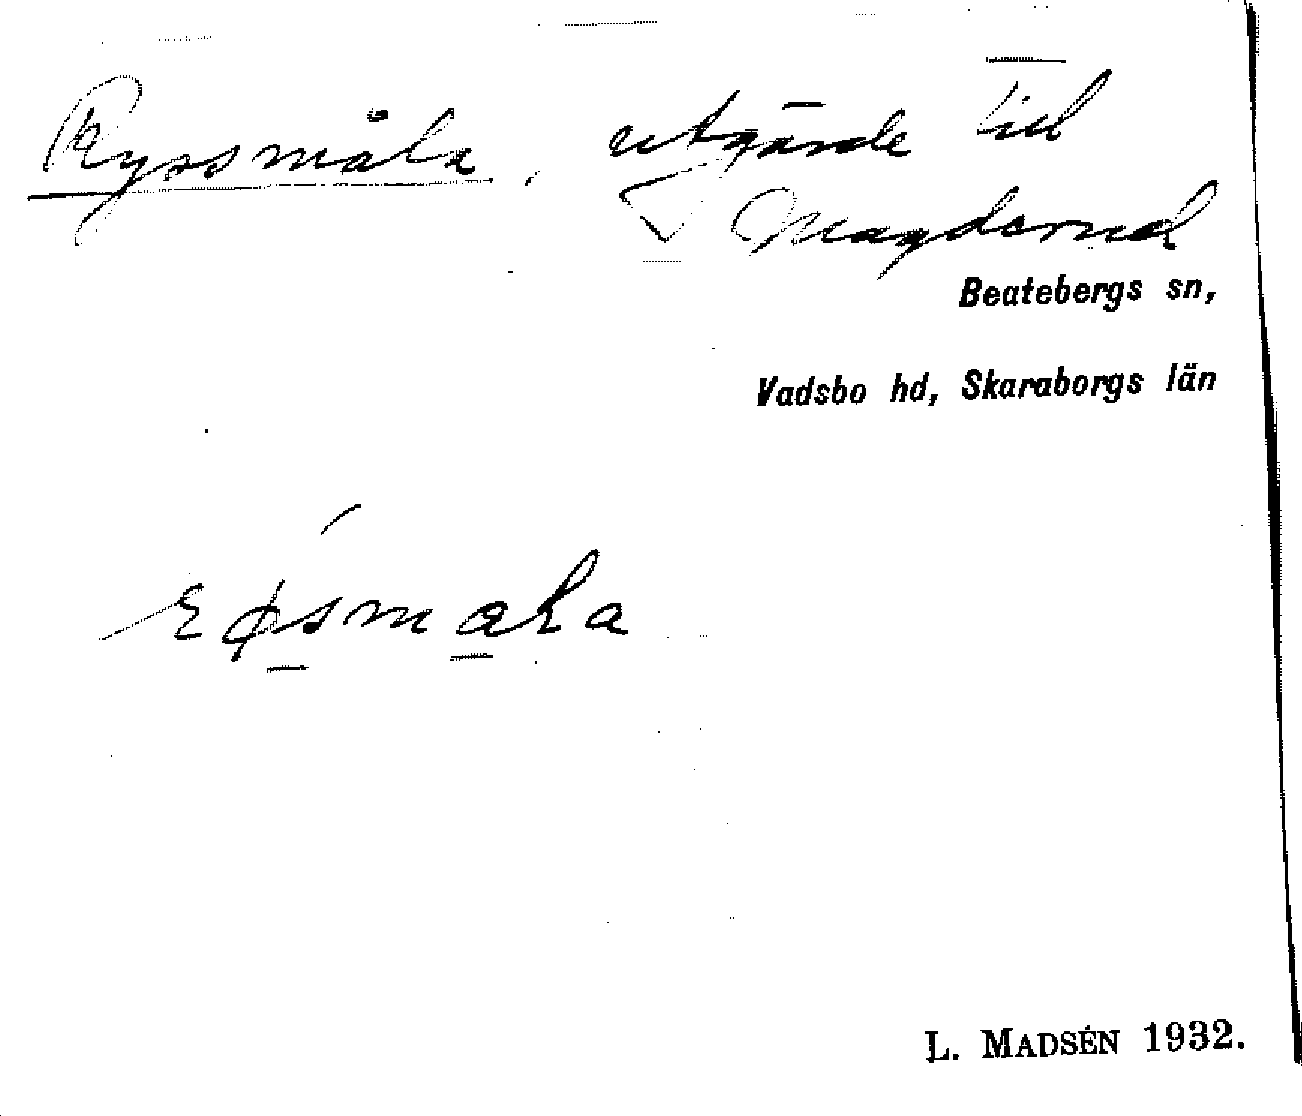 Ryssmåla, utgärde till
Magderud
Beatebergs sn,
Vadsbo hd, Skaraborgs län
L. MADSÉN 1932.